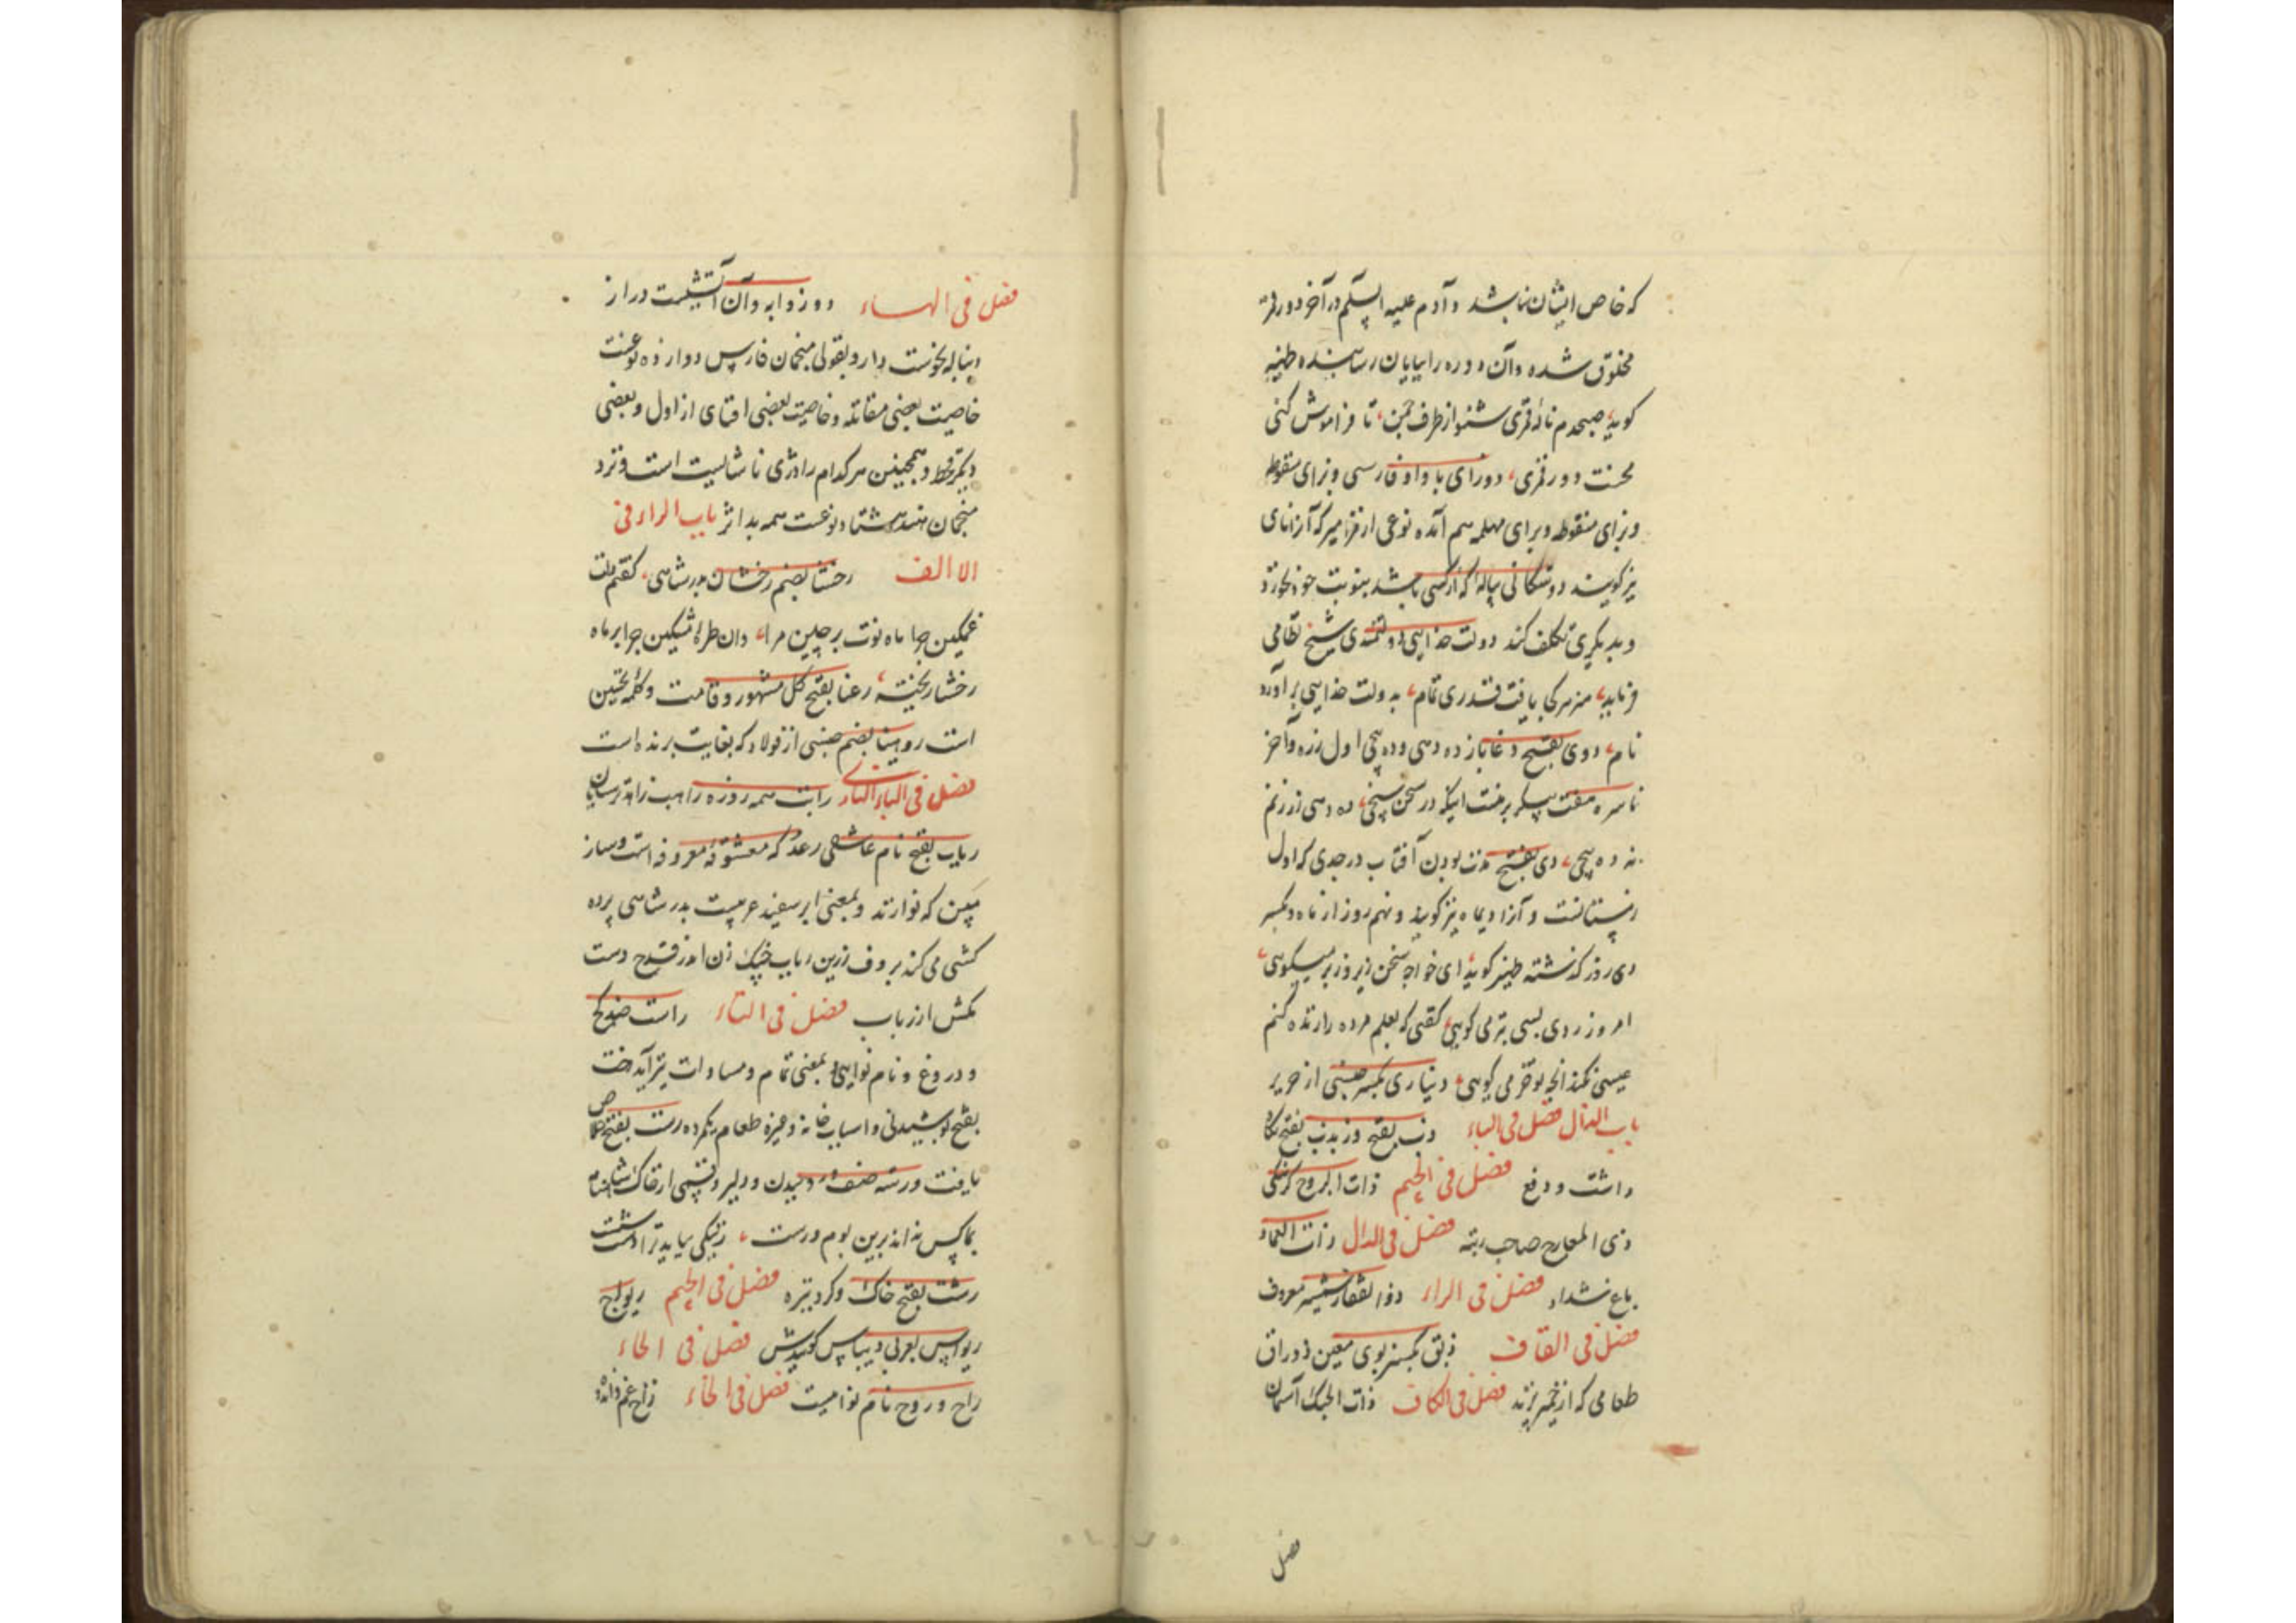 که خاص ایشان نباشد و آدم علیه السلم در آخر دور قمر
مخلوق شده و آن دوره را بپایان رسانیده ظهیر
کوید صبحدم نالهٔ قمری شنو از طرف چمن تا فراموش کنی
محنت دور قمری دورای با واو فارسی و زای منقوط
و برای منقوطه و برای مهمله هم آمده نوعی از مزامیر که آنرا نای
نیز کویند دوستکانی پیاله که از کسی باشد بنوبت خود خورد
و بدیکری تکلف کند دولت خدایی دولتمندی شیخ نظامی
فرماید بدولت خدایی برآورد
نام دوی بفتح دغاباز ده دهی و ده پنجی اول زره و آخر
ناسره در سخن سنجی ده دهی زر زنم
نه ده پنجی دی بفتح مدت بودن آفتاب در جدی که اول
زمستانست و آنرا دیماه نیز کویند و نهم روز از ماه و بکسر
دی روز کذشته ظهیر کوید ای خواجه سخن زیر و زبر میکویی
امروز ز دی بسی بتر می کویی کفتی که بعلم مرده را زنده کنم
عیسی نکند انچه تو خر می کویی دیناری بکسر جنسی از حریر
باب الذال فصل فی الباء ذب بفتح
داشت و دفع فصل فی الجیم ذات البروج
ذی المعارج صاحب رتبه فصل فی الدال ذات العماد
باغ شداد فصل فی الراء ذوالفقار شمشیر معروف
فصل فی القاف ذبق بکسر بوی معین ذوراق
طعامی که از خمیر پزند فصل فی الکاف ذات الحبک آسمان
فصل
فصل فی الهاء دوزوابه و آن آتشیست دراز
دنباله نحوست دارد و بقولی منجمان فارس دوازده نوعست
خاصیت بعضی مقاتله و خاصیت بعضی از اول و بعضی
دیکر قحط و همچنین هر کدام را اثری نا شایست است و نزد
منجمان هند هشتاد نوعست همه بد اثر باب الراء فی
الاالف رخشا بضم رخشان بدر شاهی کفتم
غمکین چرا ماه نوت بر جبین مرا وان طرهٔ مشکین چرا بر ماه
رخشا ریخته رعنا بفتح کل مشهور و قامت و کلمه تحسین
است روهینا بضم جنسی از فولاد که بغایت برنده است
فصل فی الباء رابت همه روزه راهب زاهد ترسایان
رباب بفتح نام عاشقی رعد که معشوقه معروفه است و ساز
معین که نوازند و بمعنی ابر سفید عربیست بدر شاهی پرده
کشی می کند بر دف زرین رباب خیک زن اندر قدح دست
مکش از رباب فصل فی التاء راست
و دروغ و نام نوایی و بمعنی تمام و مساوات نیز آید رخت
بفتح پوشیدنی و اسباب خانه و غیره طعام بفتح
یافت و رسته صف و دمیدن و دلیر و قسمی از خاک
بما کس نماند برین بوم و رست
رشت بفتح خاک و کرد تیره فصل فی الجیم ریواج
ریواس بعربی ریباس کویندش فصل فی الحاء
راح و روح نام نوابیست فصل فی الخاء